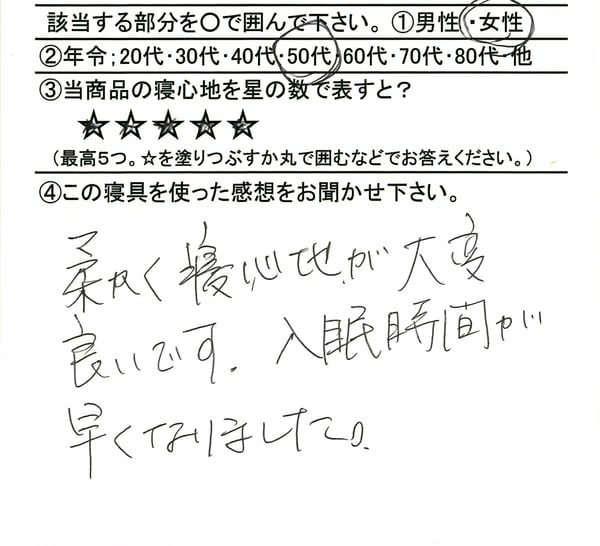 該当する部分を〇で囲んで下さい。①男性・女性
②年令;20代・30代・40代・50代・60代・70代・80代・他
③当商品の寝心地を星の数で表すと?
☆☆☆☆☆
(最高5つ。☆を塗りつぶすか丸で囲むなどでお答えください。)
④この寝具を使った感想をお聞かせ下さい。
柔かく寝心地が大変
良いです。入眠時間が
早くなりました。